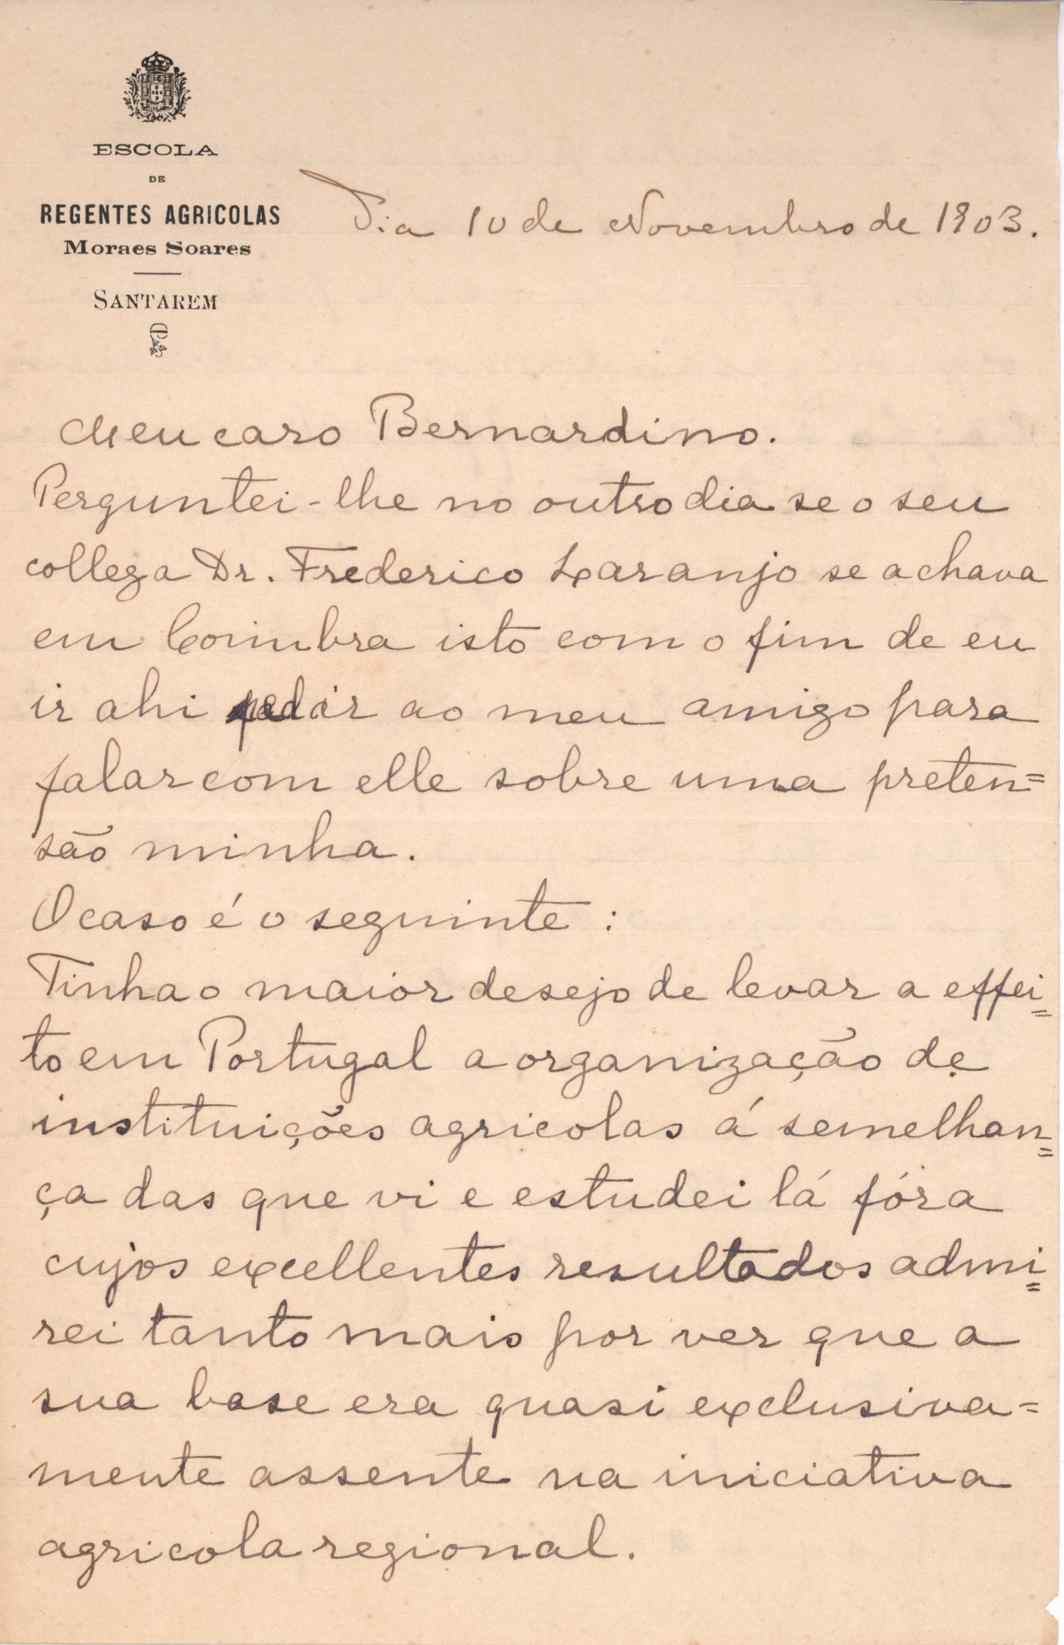 ESCOLA
DE
REGENTES AGRICOLAS
Moraes Soares
SANTAREM
Dia 10 de Novembro de 1903.
Meu caro Bernardino.
Perguntei-lhe no outro dia se o seu
collega Dr. Frederico Laranjo se achava
em Coimbra isto com o fim de eu
ir ahi pedir ao meu amigo para
falar com elle sobre uma preten=
são minha.
O caso é o seguinte :
Tinha o maior desejo de levar a effei=
to em Portugal a organização de
instituições agricolas á semelhan=
ça das que vi e estudei lá fóra
cujos excellentes resultados admi=
rei tanto mais por ver que a
sua base era quasi exclusiva=
mente assente na iniciativa
agricola regional.